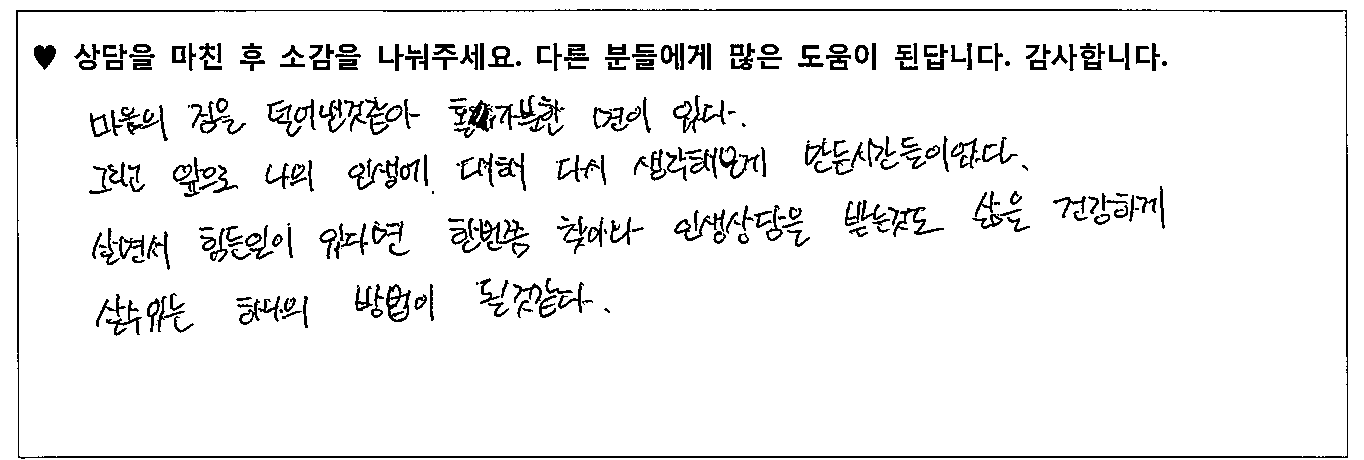 ♥ 상담을 마친 후 소감을 나눠주세요. 다른 분들에게 많은 도움이 된답니다. 감사합니다.
마음의 짐을 덜어낸것같아 면이 있다.
그리고 앞으로 나의 인생에 대해 다시 생각해보게 만든시간들이었다.
살면서 힘든일이 있다면 한번쯤 찾아와 인생상담을 받는것도 삶을 건강하게
살수있는 하나의 방법이 될것같다.